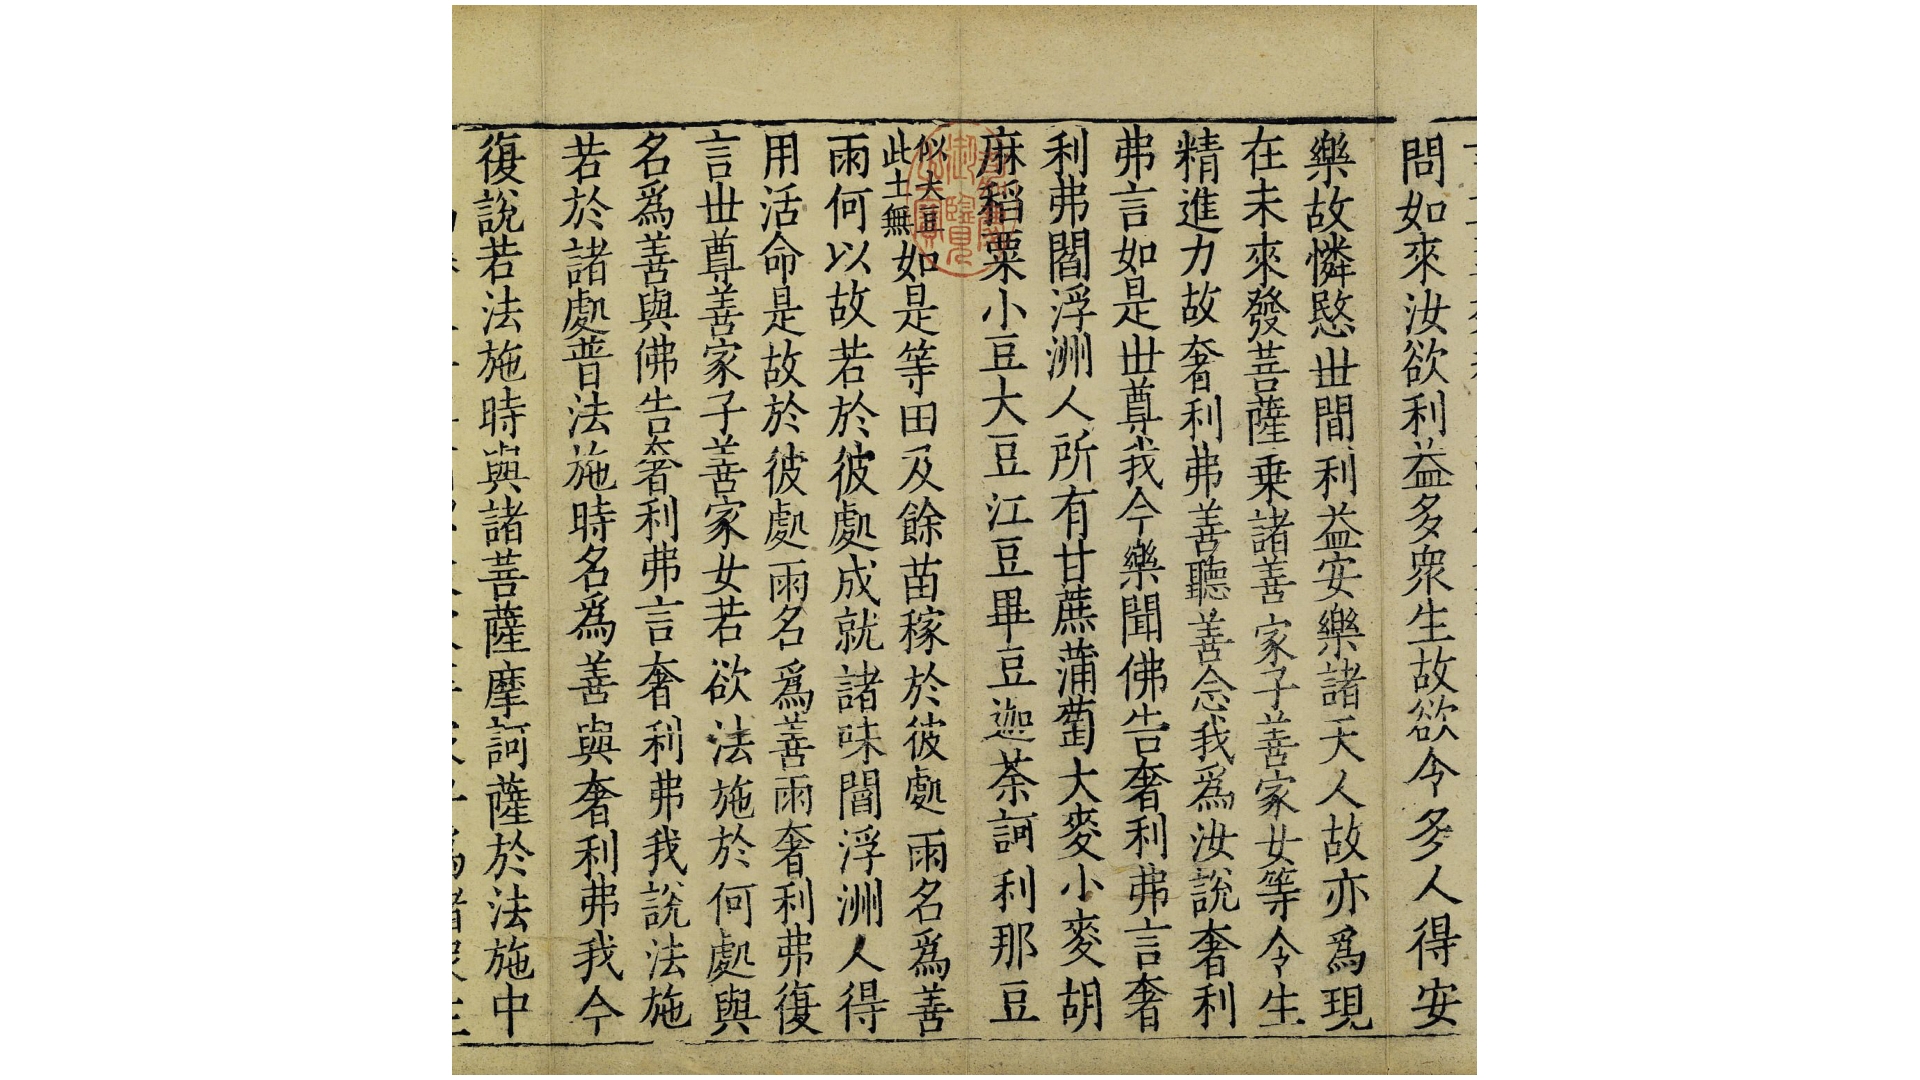 問如來汝欲利益多衆生故欲令多人得安
樂故憐愍世間利益安樂諸天人故亦爲現
在未來發菩薩乗諸善家子善家女等令生
精進力故奢利弗善聽善念我爲汝說奢利
弗言如是世尊我今樂聞佛告奢利弗言奢
利弗閻浮洲人所有甘蔗蒲萄大麥小麥胡
麻稻粟小豆大豆江豆畢豆迦荼訶利那豆
似大豆
此土無
如是等田及餘苗稼於彼處雨名爲善
雨何以故若於彼處成就諸味閻浮洲人得
用活命是故於彼處雨名爲善雨奢利弗復
言世尊善家子善家女若欲法施於何處與
名爲善與佛告奢利弗言奢利弗我說法施
若於諸處普法施時名爲善與奢利弗我今
復說若法施時與諸菩薩摩訶薩於法施中